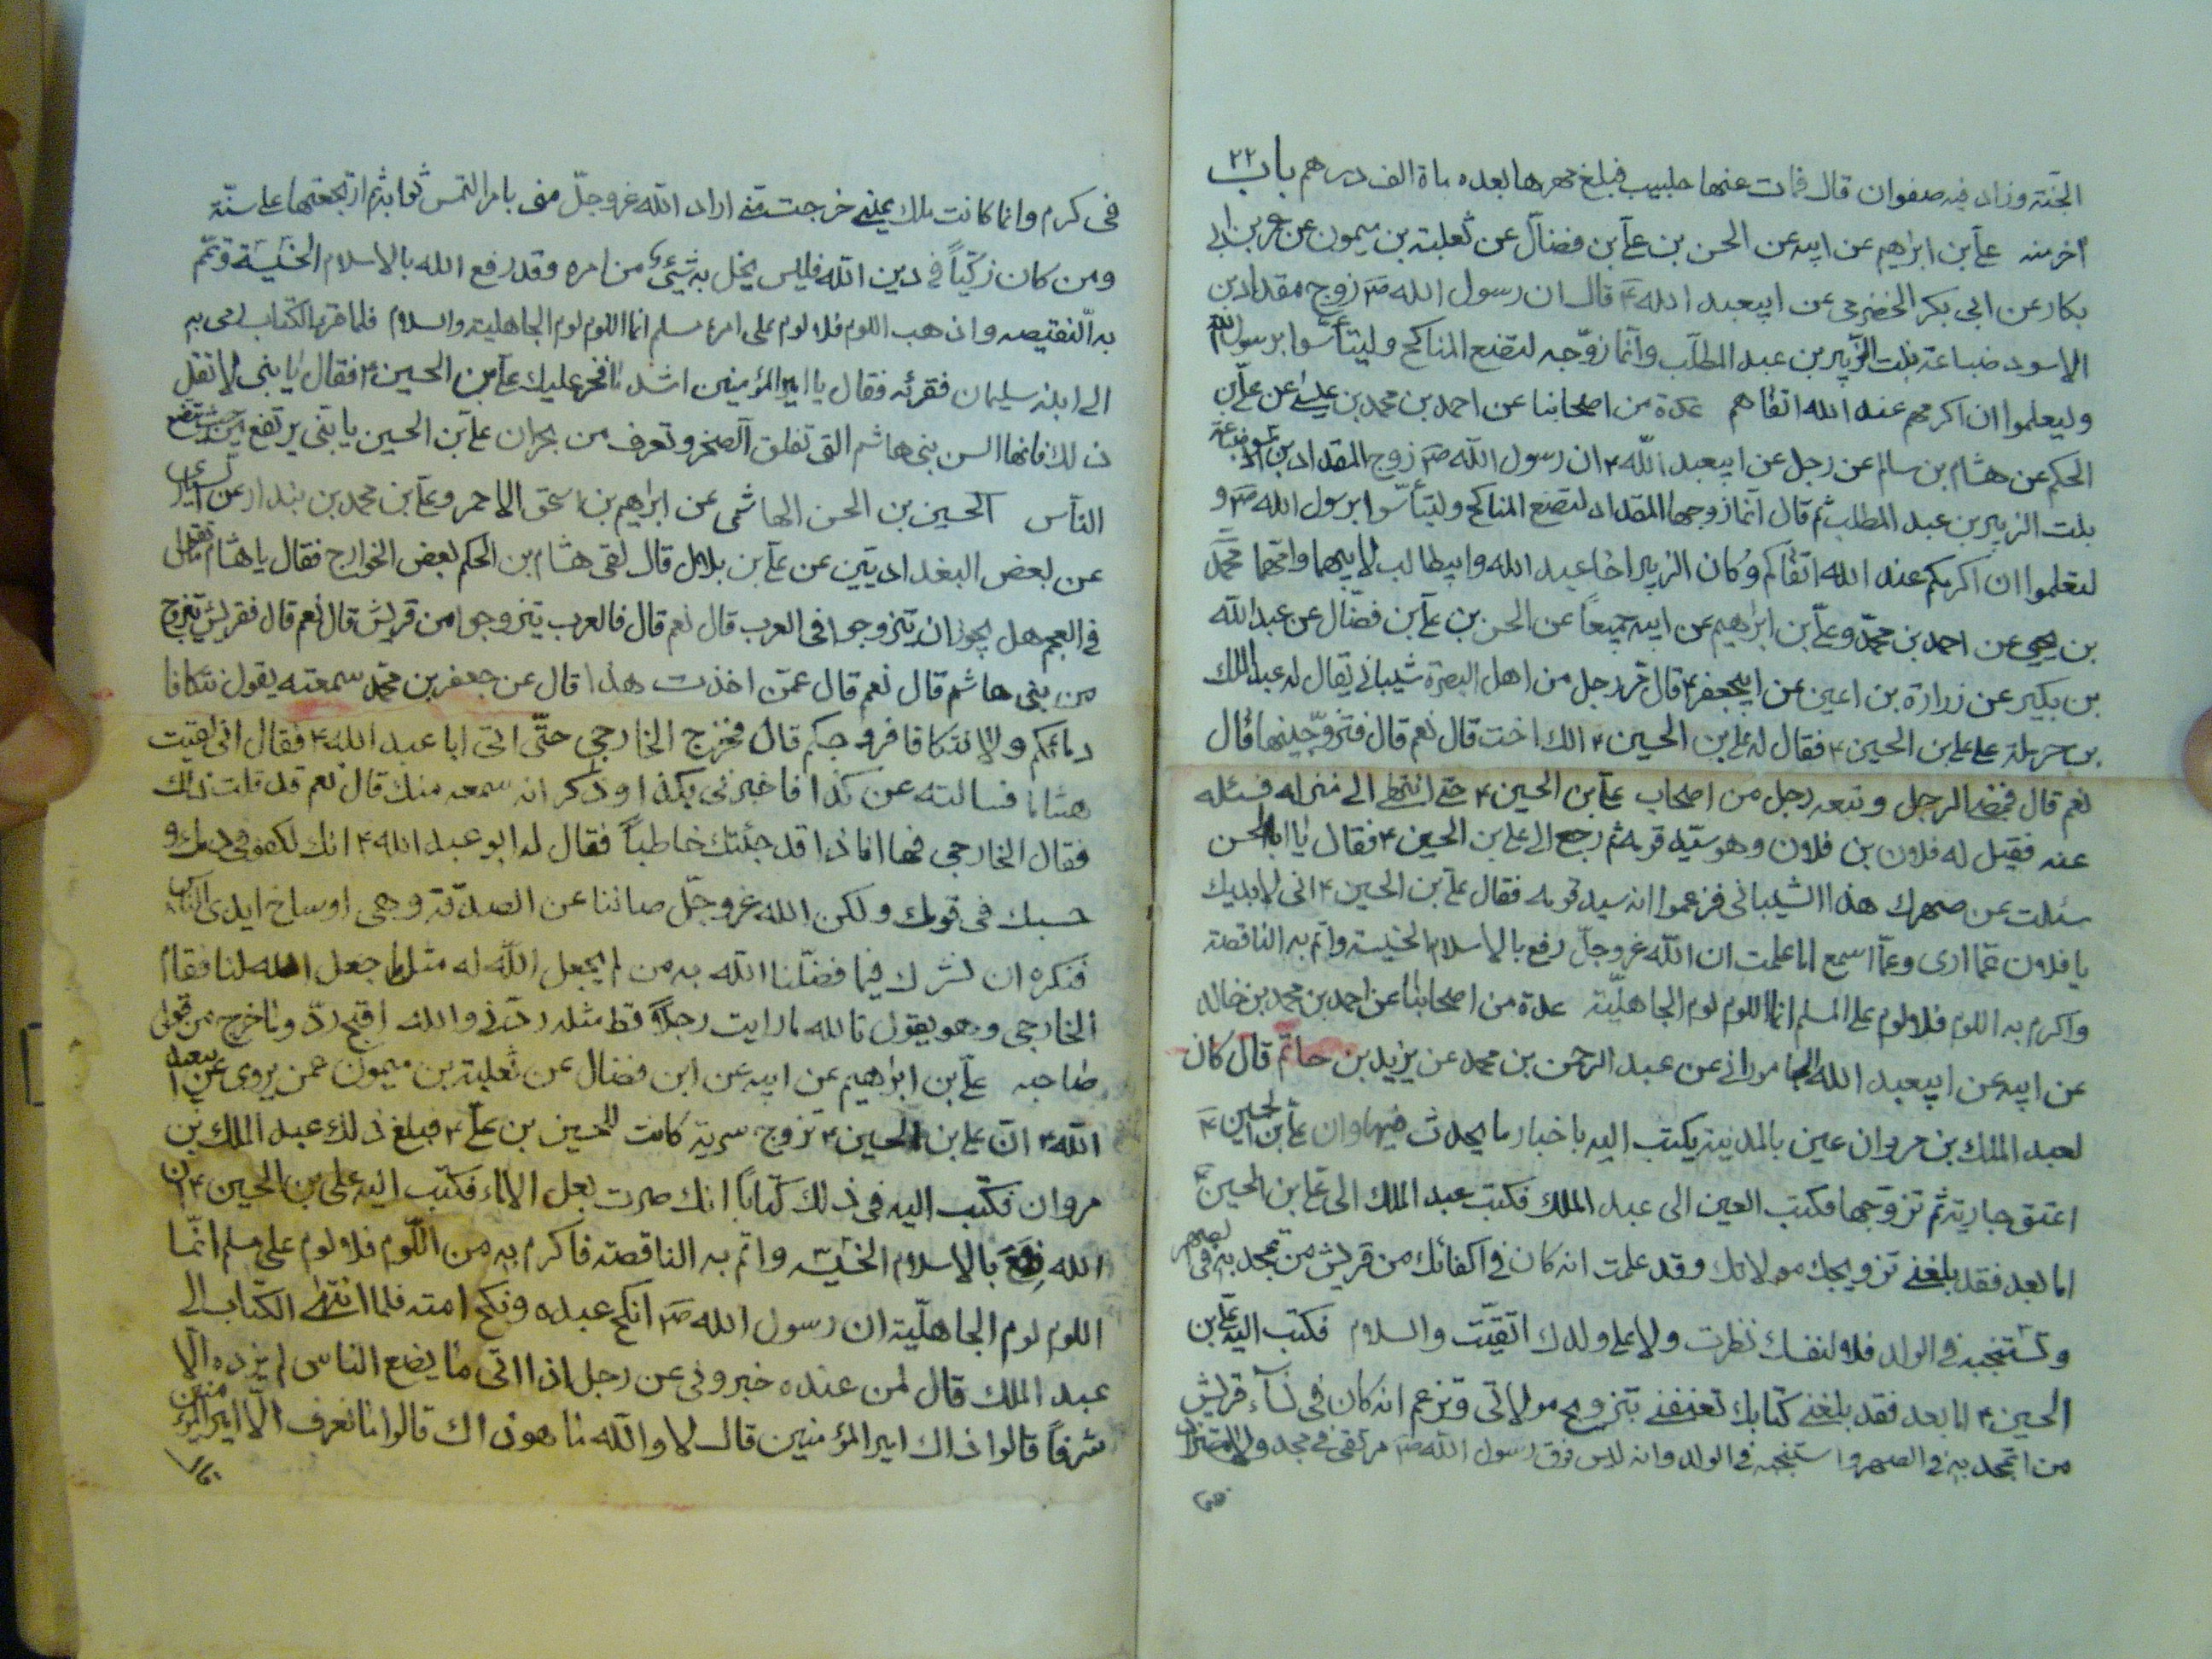 الجنة وزاد فيه صفوان قال فمات عنها جلبيب فبلغ مهرها بعده ماة الف درهم باب ٢٢
آخر منه علی بن ابراهیم عن ابيه عن الحسن بن علی بن فضال عن ثعلبة بن ميمون عن عمر بن ابی
بكار عن ابی بكر الحضرمی عن ابيعبد الله ع قال ان رسول الله ص زوج مقداد بن
الاسود ضباعة بنت الزبير بن عبد المطلب وانما زوّجه لتضع المناكح وليتأسّوا برسول الله
وليعلموا ان اكرمهم عند الله اتقاهم عدة من اصحابنا عن احمد بن محمد بن عيسى عن علی بن
الحكم عن هشام بن سالم عن رجل عن ابيعبد الله ع ان رسول الله ص زوج المقداد بن اسود ضباعة
بنت الزبير بن عبد المطلب ثم قال انما زوجها المقداد لتضع المناكح وليتأسّوا برسول الله ص و
لتعلموا ان اكرمكم عند الله اتقاكم وكان الزبير اخا عبد الله وابيطالب لابيهما وامّهما محمّد
بن يحيى عن احمد بن محمّد وعلی بن ابراهيم عن ابيه جميعاً عن الحسن بن علی بن فضّال عن عبد الله
بن بكير عن زرارة بن اعين عن ابيجعفر ع قال مرّ رجل من اهل البصرة شيبانی يقال له عبد الملك
بن حرملة على علی بن الحسين ع فقال له علی بن الحسين ع الك اخت قال نعم قال فتزوّجنيها قال
نعم قال فمضى الرجل وتبعه رجل من اصحاب علی بن الحسين ع حتى انتهى الى منزله فسئله
عنه فقيل له فلان بن فلان وهو سيّد قومه ثم رجع الى علی بن الحسين ع فقال يا ابا الحسن
سئلت عن صهرك هذا الشيبانی فزعموا انه سيد قومه فقال علی بن الحسين ع انی لابديك
يا فلان عمّا ارى وعمّا اسمع اما علمت ان الله عزوجلّ رفع بالاسلام الخسيسة واتم به الناقصة
واكرم به اللوم فلا لوم على المسلم انما اللوم لوم الجاهليّة عدة من اصحابنا عن احمد بن محمد بن خالد
عن ابيه عن ابيعبد الله الجامورانی عن عبد الرحمن بن محمد عن يزيد بن حاتم قال كان
لعبد الملك بن مروان عين بالمدينة يكتب اليه باخبار ما يحدث فيها وان علی بن الحسين ع
اعتق جارية ثم تزوّجها فكتب العين الى عبد الملك فكتب عبد الملك الى علی بن الحسين ع
اما بعد فقد بلغنی تزويجك مولاتك وقد علمت انه كان فی اكفائك من قريش من تمجد به فی الصهر
وتستنجبه فی الولد فلا لنفسك نظرت ولا على ولدك اتقيت والسلام فكتب اليه علی بن
الحسين ع اما بعد فقد بلغنی كتابك تعنفنی بتزويج مولاتی وتزعم انه كان فی نسآء قريش
من اتمجد به فی الصهر واستنجبه فی الولد وانه ليس فوق رسول الله ص مرتقى فی مجد ولا مستزاد
فی كرم وانما كانت ملك يمينی خرجت متى اراد الله عزوجلّ منی بامر التمس ثوابه ثم ارتجعتها على سنّة
ومن كان زكيّاً فی دين الله فليس يخل به شیء من امره وقد رفع الله بالاسلام الخسيسة وتمّم
به النقيصه واذهب اللوم فلا لوم على امرء مسلم انما اللوم لوم الجاهلية والسلام فلما قرء الكتاب رمى به
الى ابنه سليمان فقرئه فقال يا امير المؤمنين لشد ما فخر عليك علی بن الحسين ع فقال يا بنی لا تقل
ذلك فانها السن بنی هاشم التی تفلق الصخر وتغرف من بحر ان علی بن الحسين يا بنی يرتفع من حيث يتضع
الناس الحسين بن الحسن الهاشمی عن ابراهيم بن اسحق الاحمر وعلی بن محمد بن بندار عن السياری
عن بعض البغداديين عن علی بن بلال قال لقی هشام بن الحكم بعض الخوارج فقال يا هشام ما تقول
فی العجم هل يجوز ان يتزوجوا فی العرب قال نعم قال فالعرب يتزوجوا من قريش قال نعم قال فقريش تتزوج
من بنی هاشم قال نعم قال عمّن اخذت هذا قال عن جعفر بن محمّد سمعته يقول تتكافا
دمائكم ولا تتكافا فروجكم قال فخرج الخارجی حتّى اتى ابا عبد الله ع فقال انی لقيت
هشاما فسالته عن كذا فاخبرنی بكذا وذكر انه سمعه منك قال نعم قد قلت ذلك
فقال الخارجی فها انا ذا قد جئتك خاطباً فقال له ابو عبد الله ع انك لكفو فی دمك و
حسبك فی قومك ولكن الله عزوجلّ صاننا عن الصدقة وهی اوساخ ايدی الناس
فنكره ان نشرك فيما فضّلنا الله به من لم يجعل الله له مثل ما جعل الله لنا فقام
الخارجی وهو يقول تالله ما رايت رجلاً قط مثله ردّنی والله اقبح ردّ وما خرج من قول
صاحبه علی بن ابراهيم عن ابيه عن ابن فضال عن ثعلبة بن ميمون عمن يروی عن ابيعبد
الله ع انّ علی بن الحسين ع تزوج سرية كانت للحسين بن علی ع فبلغ ذلك عبد الملك بن
مروان فكتب اليه فی ذلك كتاباً انك صرت بعل الاماء فكتب اليه علی بن الحسين ع ان
الله رفع بالاسلام الخسيسة واتم به الناقصة فاكرم به من اللّوم فلا لوم على مسلم انّما
اللوم لوم الجاهلّية ان رسول الله ص انكح عبده ونكح امته فلما انتهى الكتاب الى
عبد الملك قال لمن عنده خبرونی عن رجل اذا اتى ما يضع الناس لم يزده الّا
شرفاً قالوا ذاك امير المؤمنين قال لا والله ما هو ذاك قالوا ما نعرف الّا امير المؤمنين